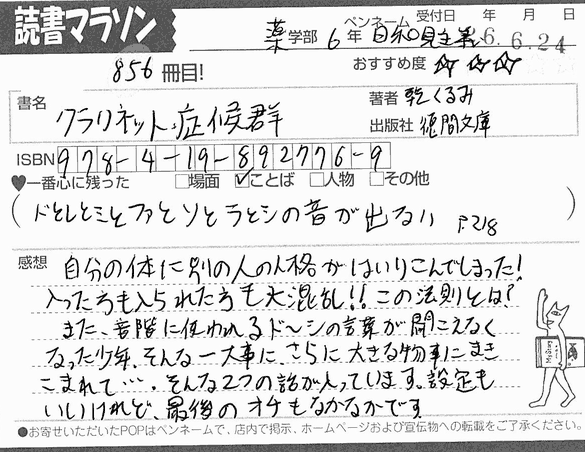 読書マラソン
ペンネーム 受付日 年 月 日
薬学部 6年 6.6.24
856冊目!
おすすめ度 ☆ ☆ ☆
書名
クラリネット症候群
著者 乾くるみ
出版社 徳間文庫
ISBN 978-4-19-892776-9
♥一番心に残った □場面 ☑ことば □人物 □その他
(ドとレとミとファとソとラとシの音が出ない P.218)
感想
自分の体に別の人の人格がはいりこんでしまった!
入った方も入られた方も大混乱!!この法則とは?
また、音階に使われるド〜シの言葉が聞こえなく
なった少年。そんな一大事に、さらに大きな物事にまき
こまれて…。そんな2つの話が入っています。設定も
いいけれど、最後のオチもなかなかです
●お寄せいただいたPOPはペンネームで、店内で掲示、ホームページおよび宣伝物への転載をご了承ください。